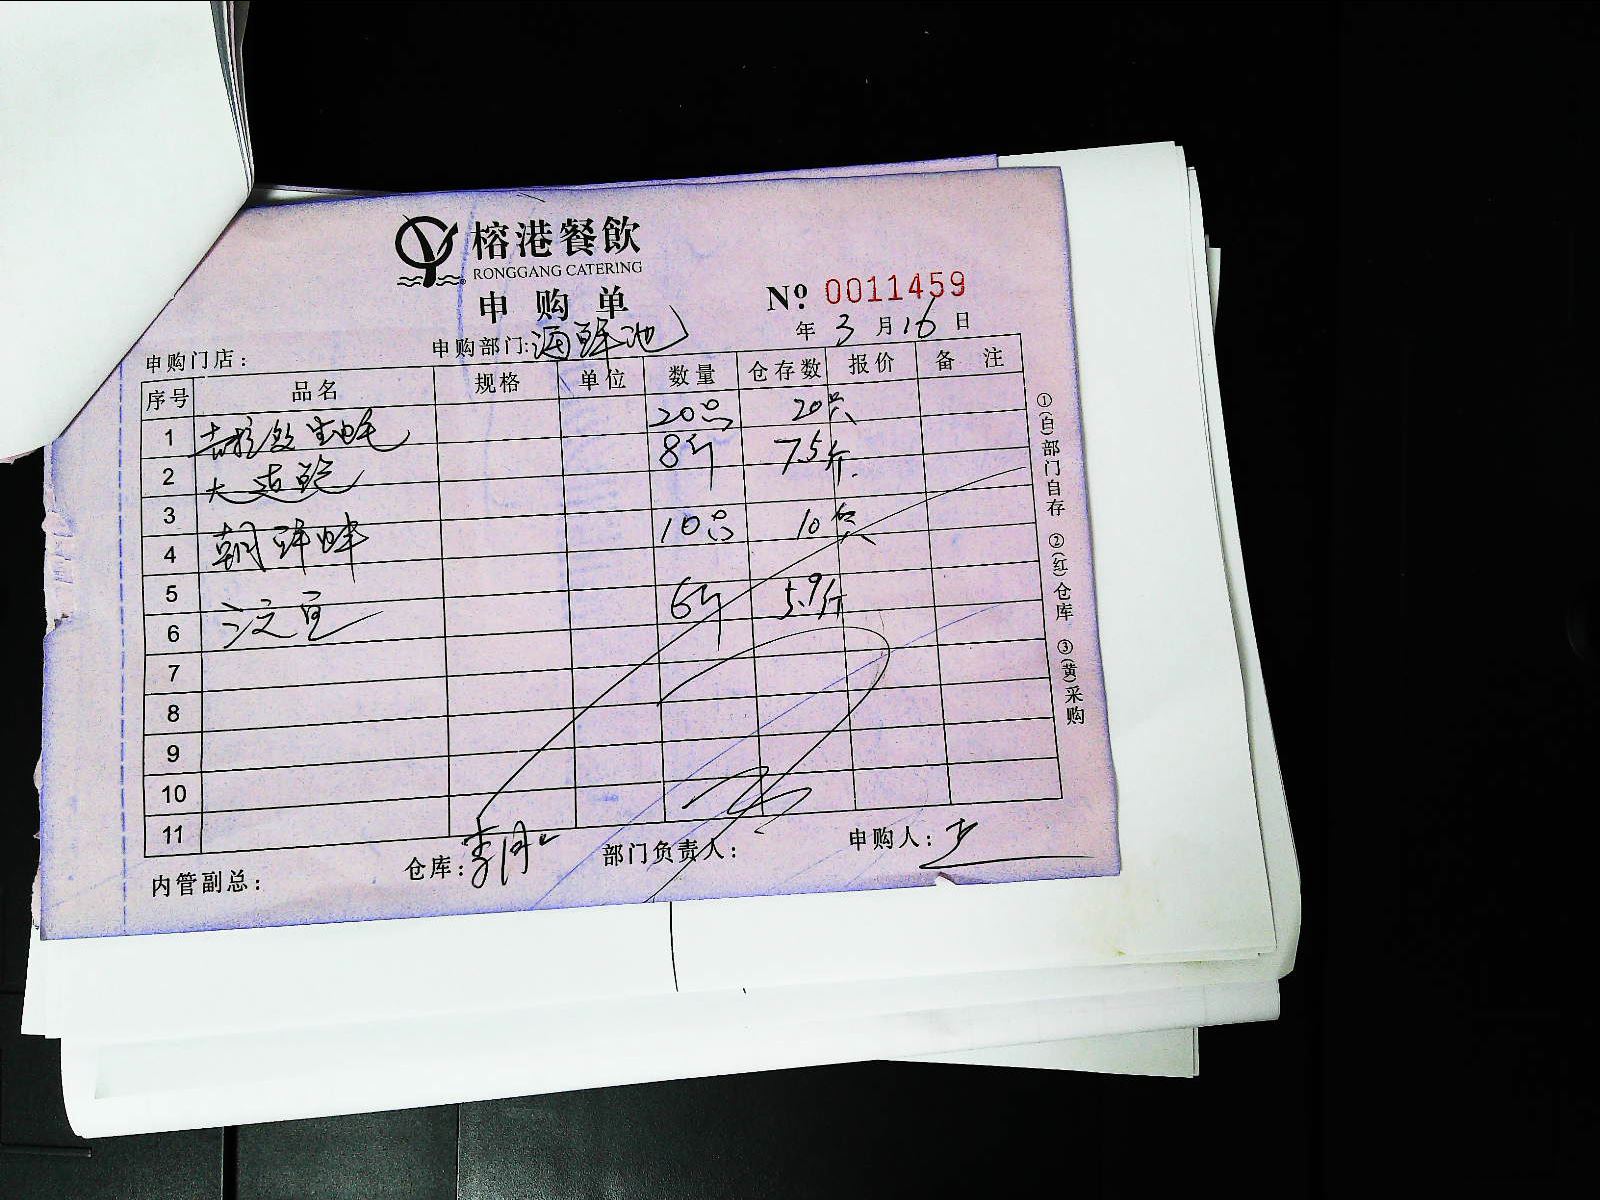 榕港餐飲
RONGGANG CATERING
申购单
№ 0011459
年 3 月 16 日
申购门店： 申购部门：海鲜池
序号 品名 规格 单位 数量 仓存数 报价 备注
1 吉拉多生蚝 20只 20只
2 大连鲍 8斤 7.5斤
3
4 朝鲜蚌 10只 10只
5
6 6斤 5.9斤
7
8
9
10
11
内管副总： 仓库： 部门负责人： 申购人：
①(白)部门自存 ②(红)仓库 ③(黄)采购